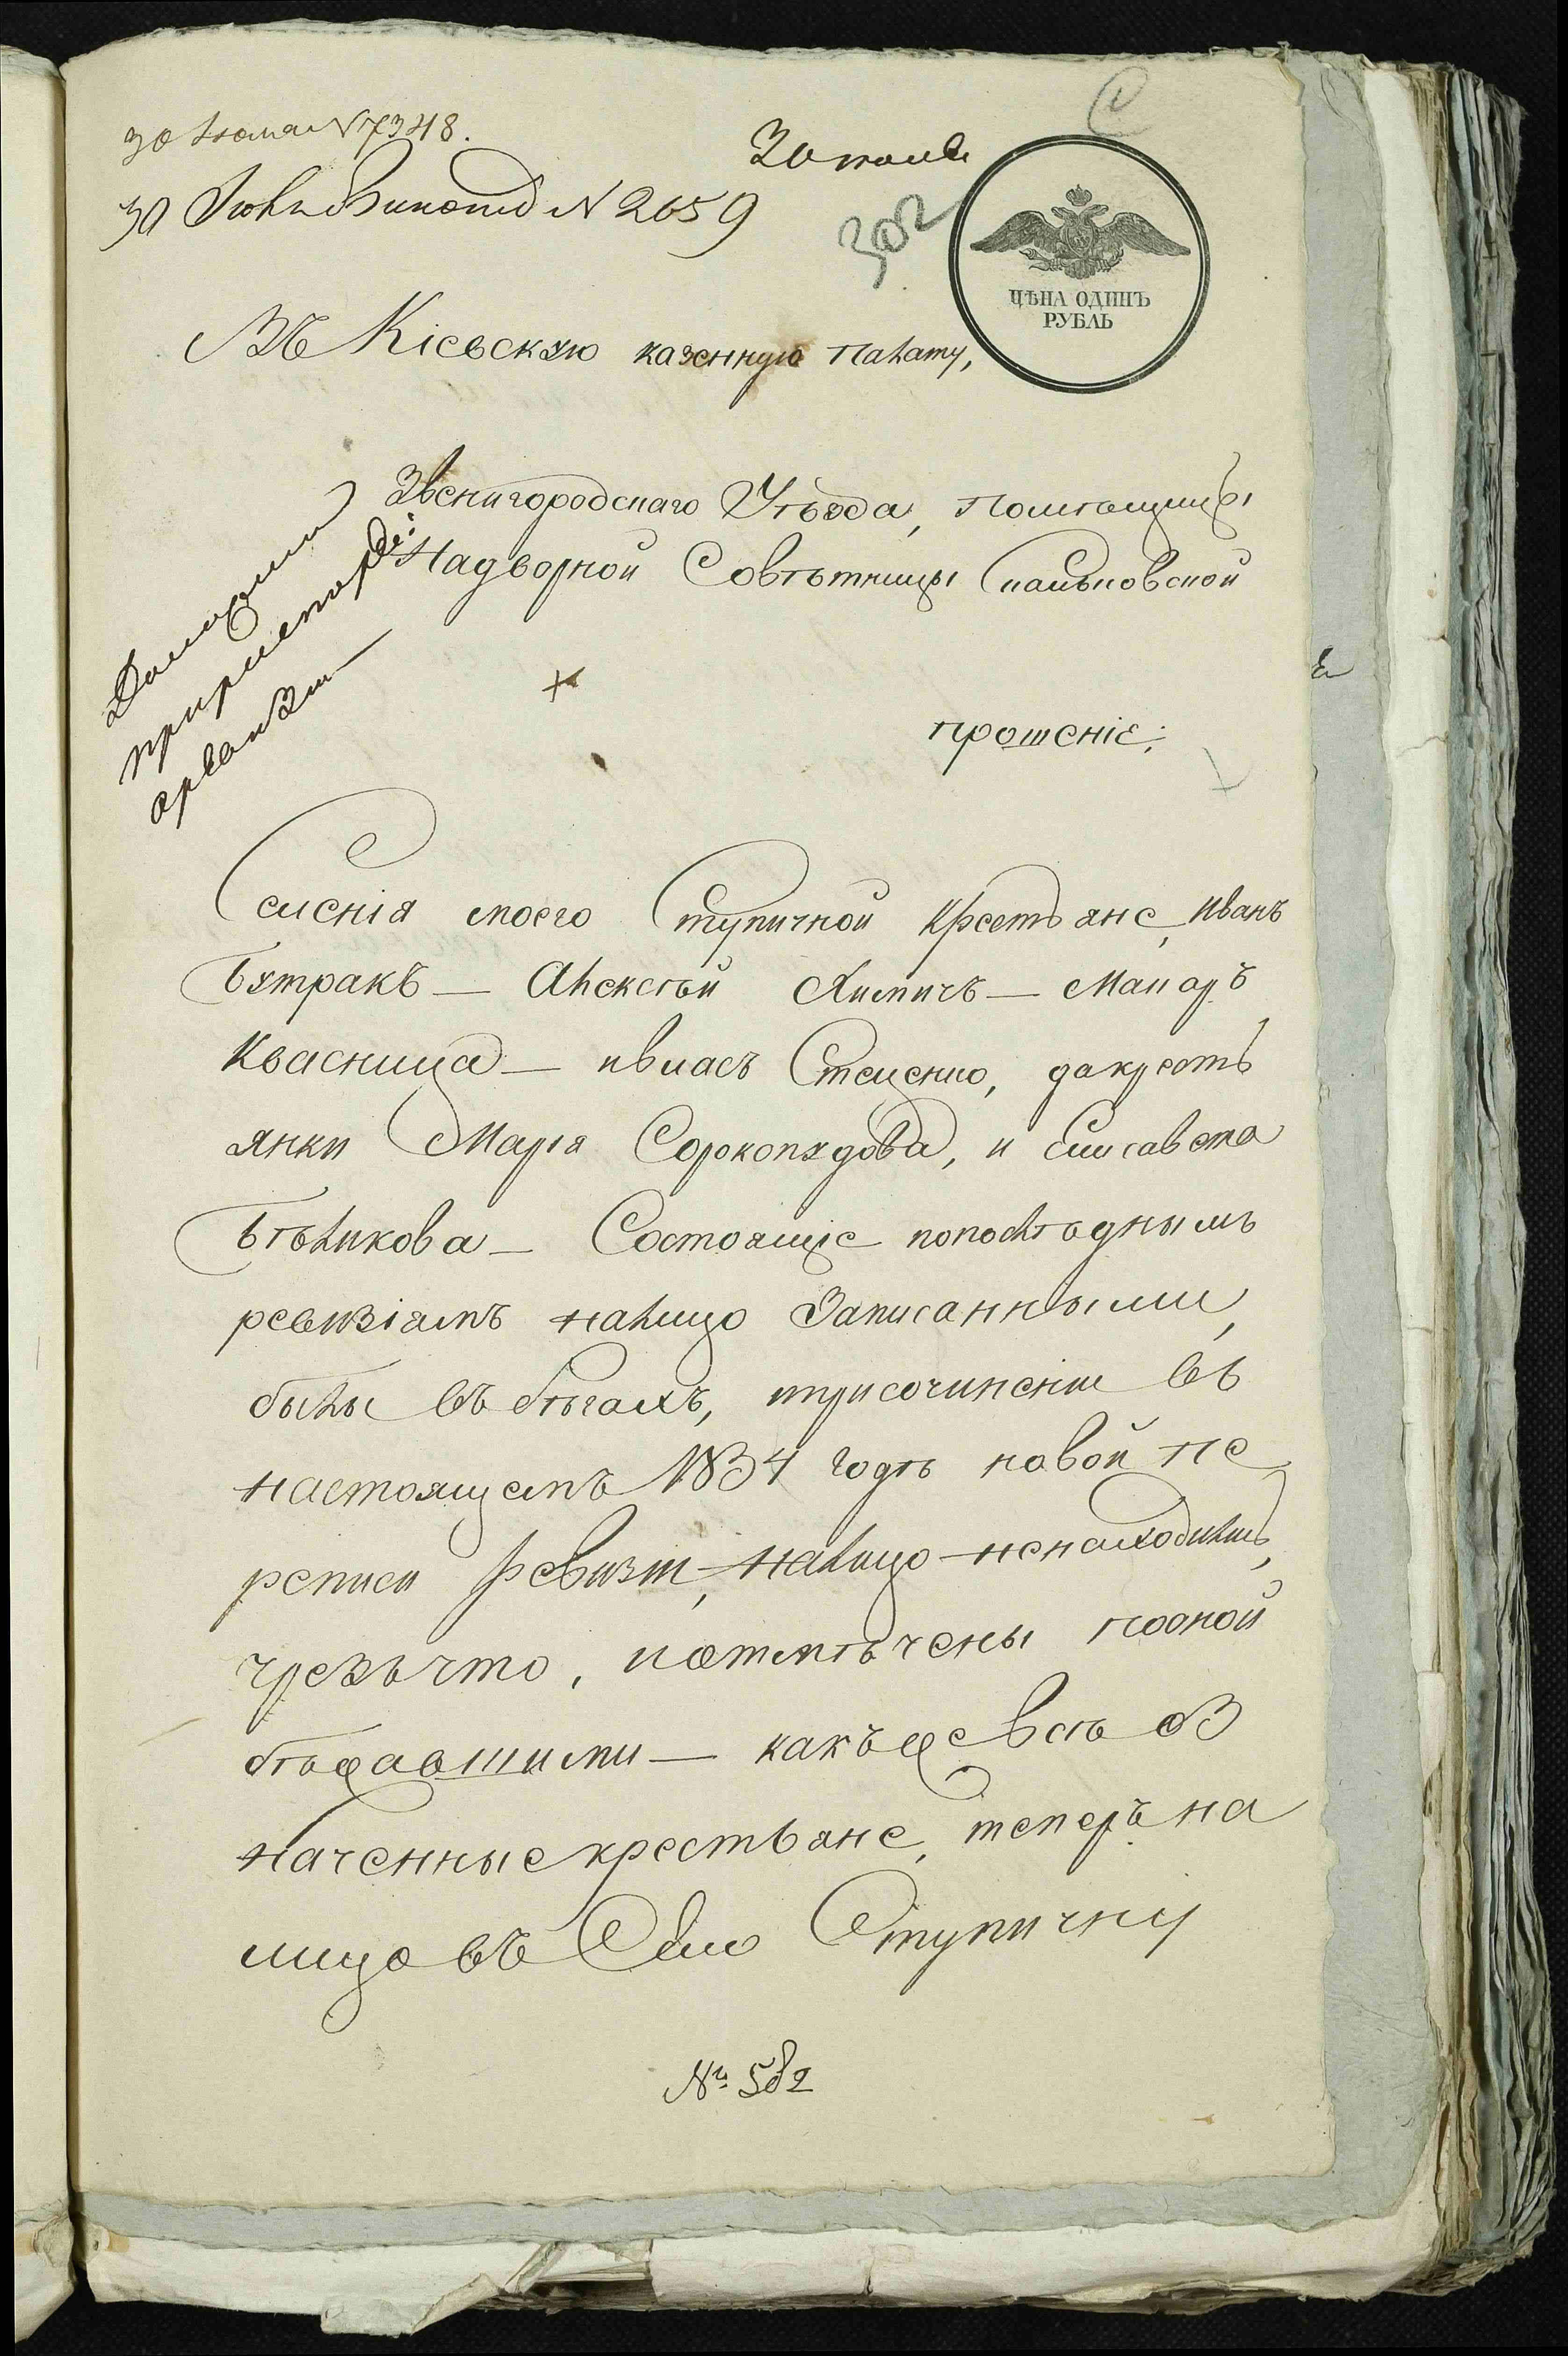 30 Іюля N 7348.
30 июля
30 Июля N 2659
302
ЦѢНА ОДИНЪ
РУБЛЬ
Въ Кіевскую казенную палату,
Звенигородскаго Уѣзда, Помѣщицы
Надворной Совѣтницы
прошеніе:
Селенія моего Ступичной крестьяне, Иванъ
Бутракъ — Алексѣй Химичъ — Макаръ
Квасница — Стеценко, да крестъ
янки Марія Сорокопудова, и Елисавета
Бѣликова — Состоящіе попослѣднымъ
ревизіямъ налицо Записанными,
были въ бѣгахъ, иприсочиненіи въ
настоящемъ 1834 годѣ новой пе
реписи Ревизіи, налицо ненаходились,
чрезъ что, иотмѣчены пооной
бѣжавшими — какъже всѣ оз
наченные крестьяне, теперъ на
лицо въ Селѣ Ступичну
№ 582